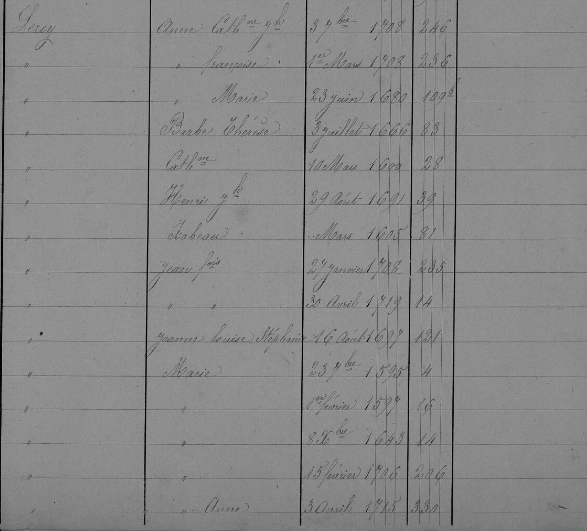 Leroy Anne Cath ne Jh 3 7bre 1708 246
" " françoise 1er Mars 1708 236
" " Marie 23 juin 1680 109
" Barbe Thérèse 3 juillet 1666 83
" Cath ne 10 Mars 28
" Henri Jh 29 Août 1691 39
" Isabeau Mars 1605 81
" Jean fois 27 janvier 1708 235
" " " 30 Avril 1719 14
" Jeanne Louise Stéphanie 16 Août 1697 121
" Marie 23 7bre 1595 4
" " 1er février 1597 16
" " 8bre 1643 14
" " 15 février 1706 206
" " Anne 3 Avril 1715 330